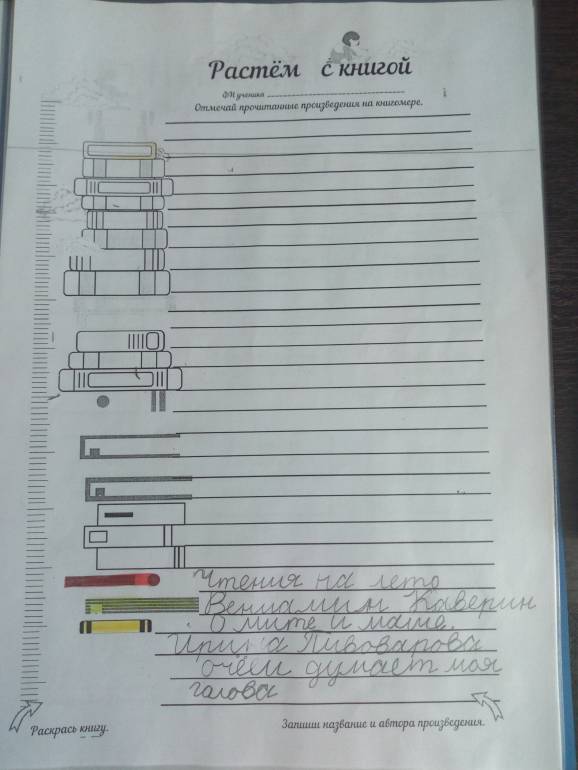 Растём с книгой
ФИ ученика
Отмечай прочитанные произведения на книгомере.
Чтения на лето
Вениамин Каверин
О мите и маше.
Ирина Пивоварова
очём думает моя
галова
Раскрась книгу.
Запиши название и автора произведения.